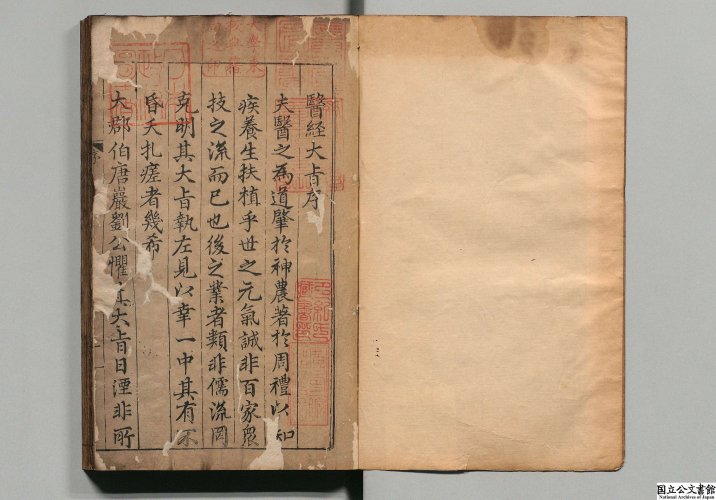 醫經大旨序
夫醫之為道肇於神農著於周禮以知
疾養生扶植乎世之元氣誠非百家眾
技之流而已也後之業者類非儒流罔
克明其大旨執左見以幸一中其有不
昏夭扎瘥者幾希
大郡伯唐巖劉公懼其大旨日湮非所
国立公文書館
National Archives of Japan